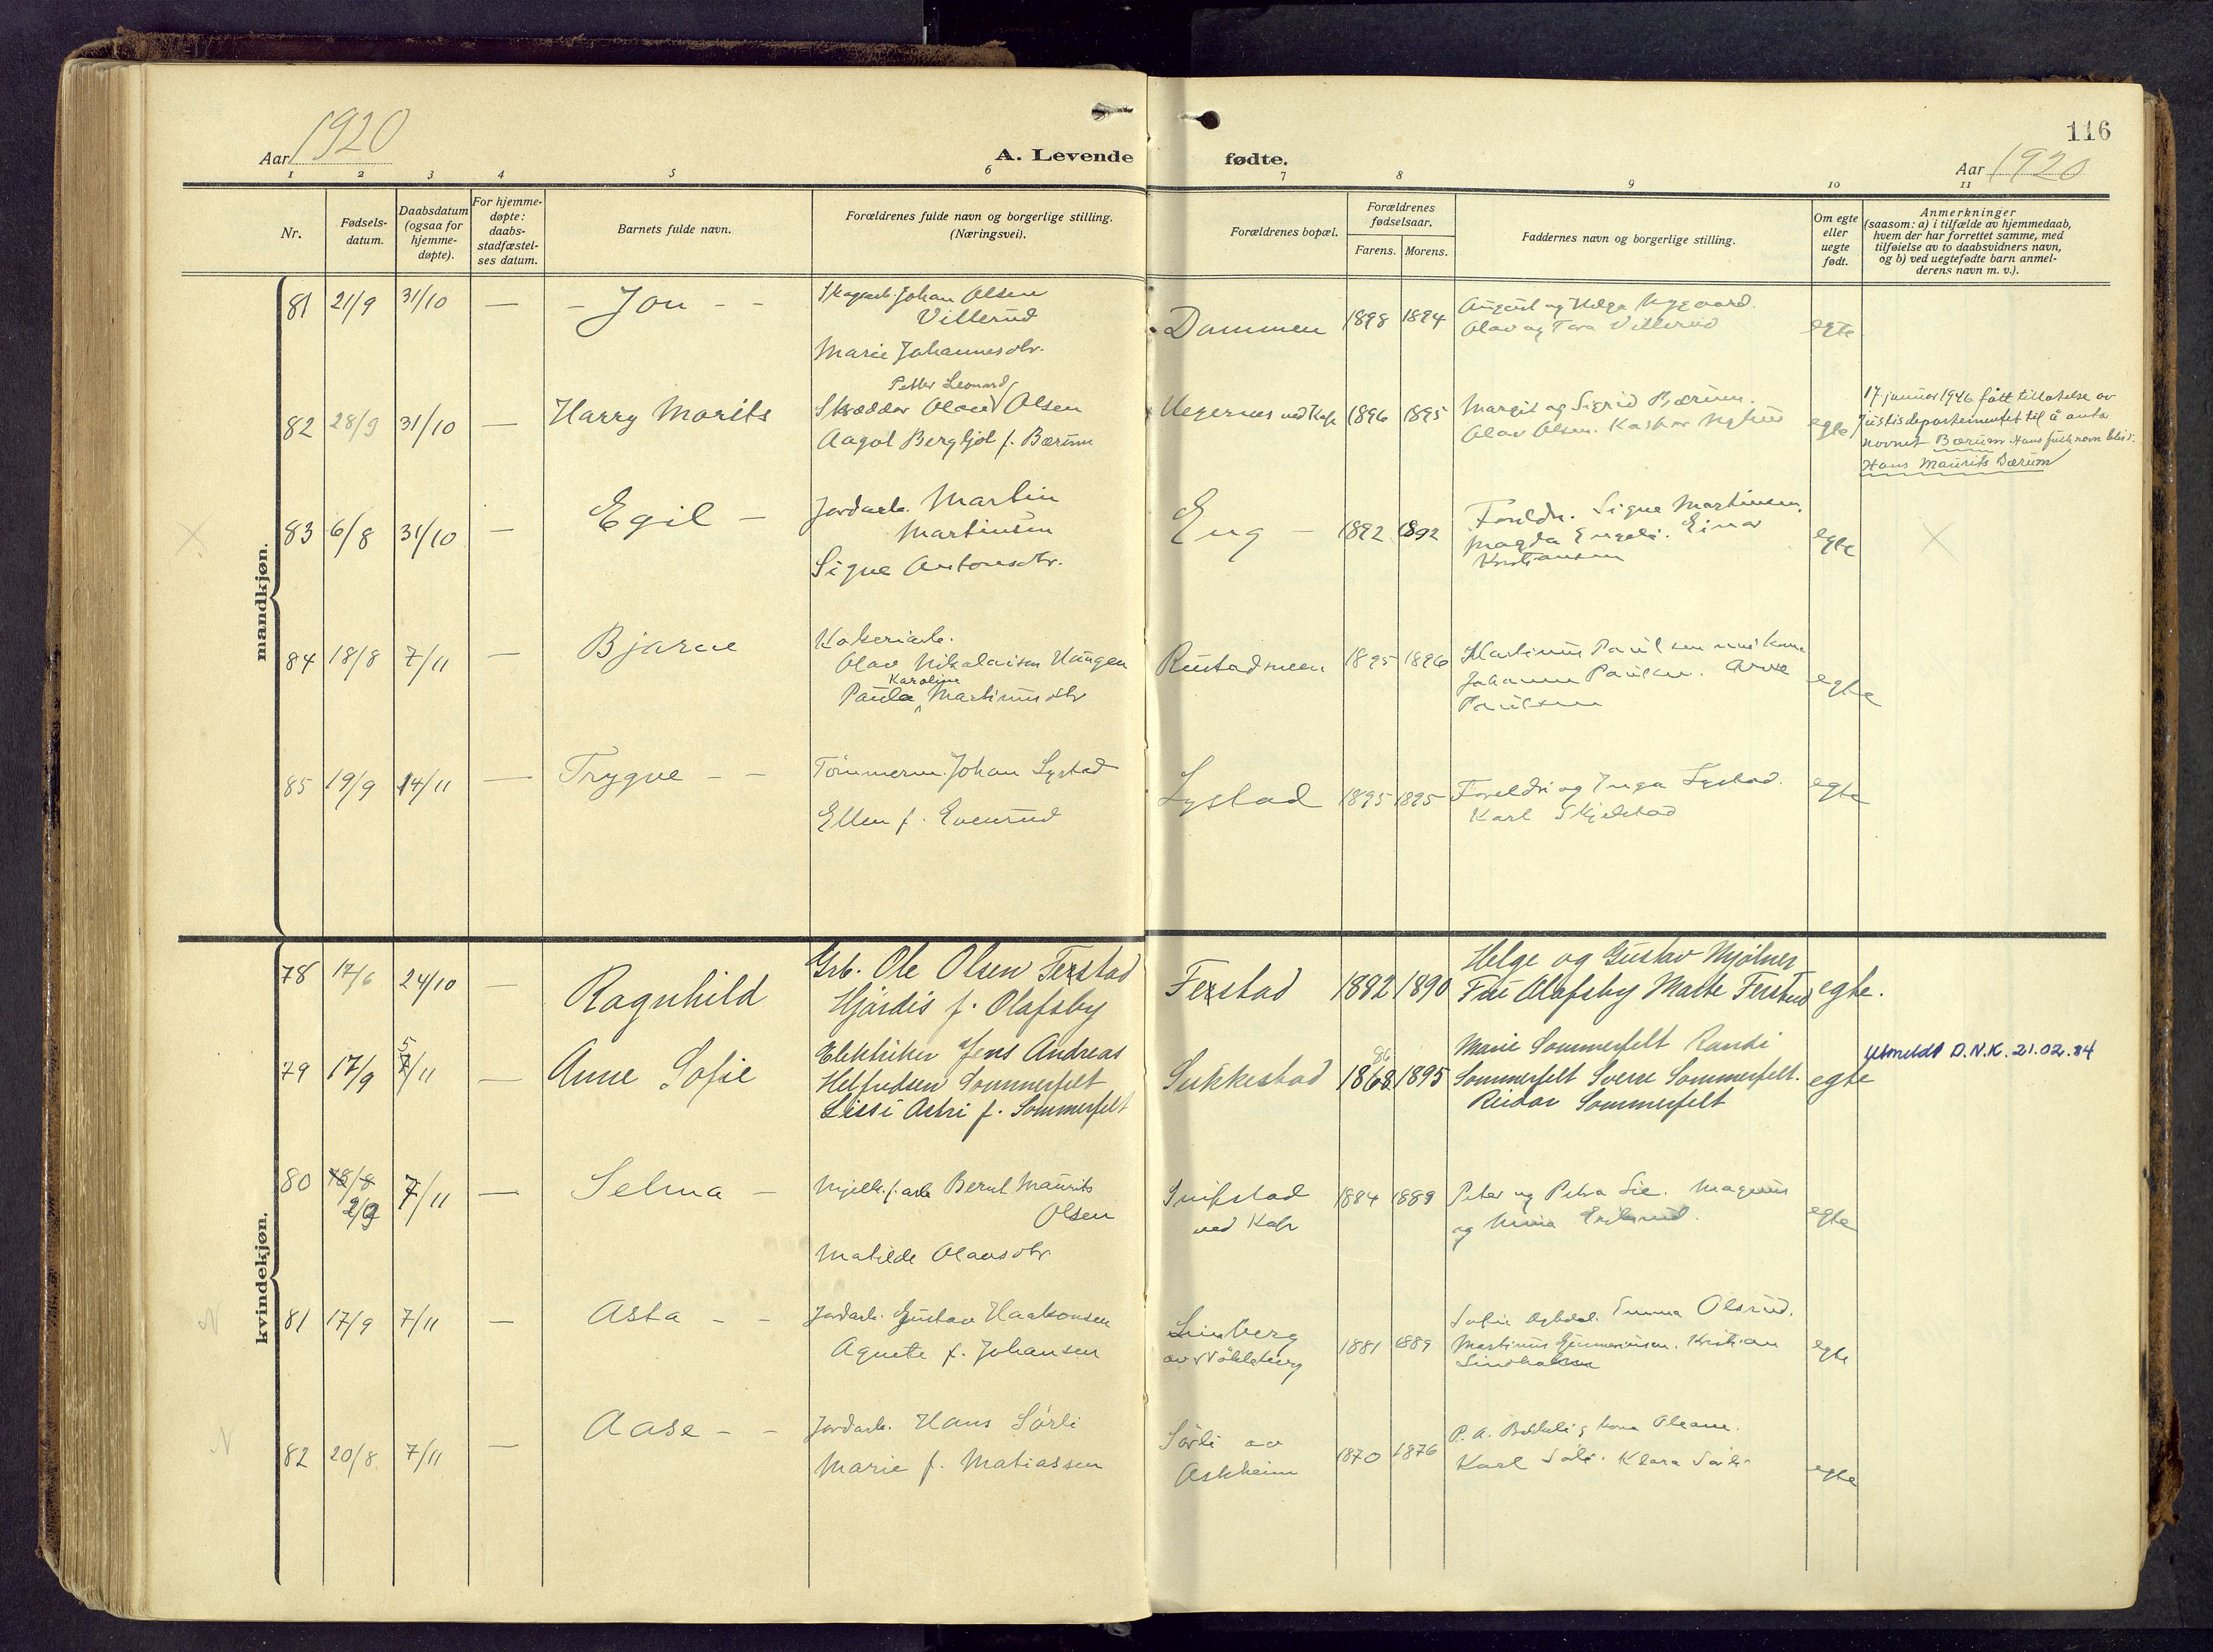 116
Aar 1920
A. Levende
fødte.
Aar 1920
1 2 3 4 5 6 7 8 9 10 11
Nr.
Fødsels-
datum.
Daabsdatum
(ogsaa for
hjemme-
døpte).
For hjemme-
døpte:
daabs-
stadfæstel-
ses datum.
Barnets fulde navn.
Forældrenes fulde navn og borgerlige stilling.
(Næringsvei).
Forældrenes bopæl.
Forældrenes
fødselsaar.
Farens. Morens.
Faddernes navn og borgerlige stilling.
Om egte
eller
uegte
født.
Anmerkninger
(saasom: a) i tilfælde av hjemmedaab,
hvem der har forrettet samme, med
tilføielse av to daabsvidners navn,
og b) ved uegtefødte barn anmel-
derens navn m. v.).
mandkjøn.
81 21/9 31/10 — - Jon - -
Skogarb. Johan Olsen
Villerud
Marie Johannesdtr.
Dammen 1898 1894
August og Helga Nygaard.
Olav og Tora Villerud
egte
82 28/9 31/10 — Harry Morits
Petter Leonard
Skrædder Olaus Olsen
Aagot Bergljot f. Bærum
1896 1895
Margit og Sigrid Bærum.
Olav Olsen. Kaspar Nylund
egte
17 januar 1946 fått tillatelse av
Justisdepartementet til å anta
navnet Bærum. Hans fulle navn blir:
Hans Maurits Bærum
X 83 6/8 31/10 — Egil —
Jordarb. Martin
Martinsen
Signe Antonsdtr.
Eng — 1892 1892
Foreldr. Signe Martinsen,
Magda Engeli. Einar
Kristiansen
egte X
84 18/8 7/11 — Bjarne
Olav Nikolaisen Haugen
Karoline
Paula Martinusdtr
Rustadmoen 1895 1896
Martinus Paulsen
Johanne Paulsen. Arne
Paulsen
egte
85 19/9 14/11 — Trygve - -
Tömmerm. Johan Lystad
Ellen f. Evenrud
Lystad 1895 1895
Foreldr. og Inga Lystad.
Karl Skjelstad
egte
kvindekjøn.
78 17/6 24/10 — Ragnhild
Grb. Ole Olsen Ferstad
Hjördis f. Olafsby
Ferstad 1882 1890
Helge og Gustav Mjölner
Fru Olafsby Marte Ferstad
egte.
79 17/9 5/11 — Anne Sofie
Elektriker Jens Andreas
Helfredsen Sommerfelt
Lissi Astri f. Sommerfelt
Sukkestad 86
1868 1895
Marie Sommerfelt Randi
Sommerfelt Sverre Sommerfelt.
Reidar Sommerfelt
egte
Utmeldt D.N.K. 21.02.84
80 18/8
2/9 7/11 — Selma —
Bernt Maurits
Olsen
Matilde Olausdtr.
ved Kap 1884 1889
Peter og Petra Lie. Magnus
og Mina
egte
N 81 17/9 7/11 — Asta - -
Jordarb. Gustav Haakonsen
Agnete f. Johansen
Linberg
1881 1889
Emma Olsrud.
Martinus Kristian
Lindholm
egte
N 82 20/8 7/11 — Aase - -
Jordarb. Hans Sörli
Marie f. Matiassen
Sörli av
Askheim
1870 1876
P. A.
Karl Sörli. Klara Sörli
egte